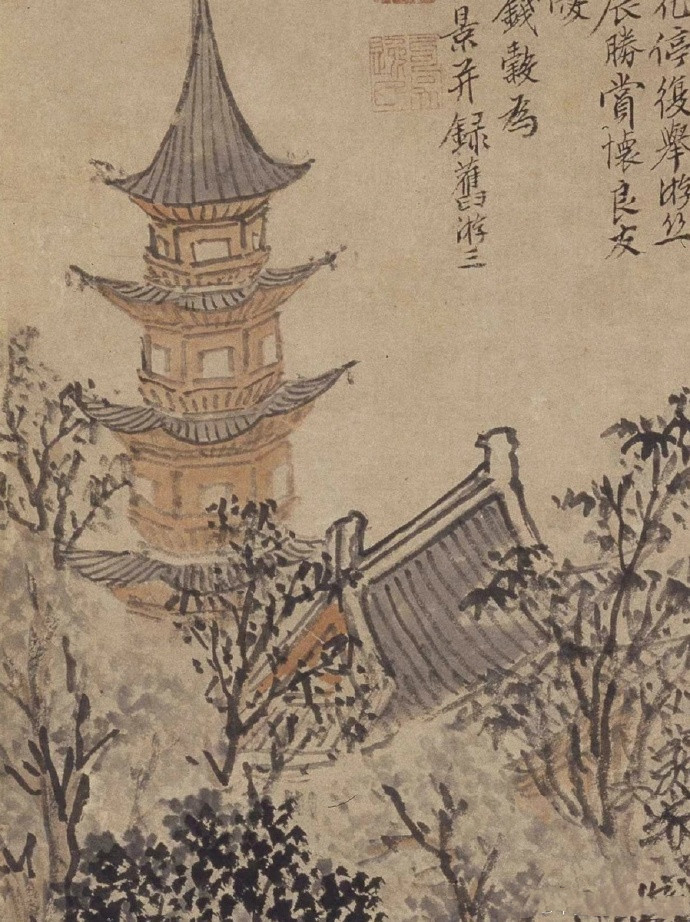 花停復舉游丝
辰勝賞懷良友
錢穀為
景并録舊游三